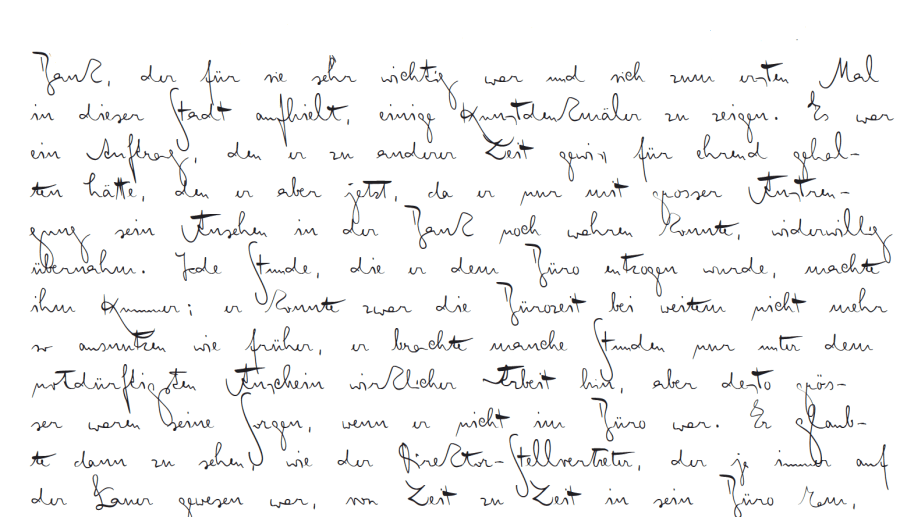 Bank, der für sie sehr wichtig war und sich zum ersten Mal
in dieser Stadt aufhielt, einige Kunstdenkmäler zu zeigen. Es war
ein Auftrag, den er zu anderer Zeit gewiss für ehrend gehal-
ten hätte, den er aber jetzt, da er nur mit grosser Anstren-
gung sein Ansehen in der Bank noch wahren konnte, widerwillig
übernahm. Jede Stunde, die er dem Büro entzogen wurde, machte
ihm Kummer; er konnte zwar die Bürozeit bei weitem nicht mehr
so ausnutzen wie früher, er brachte manche Stunden nur unter dem
notdürftigsten Anschein wirklicher Arbeit hin, aber desto grös-
ser waren seine Sorgen, wenn er nicht im Büro war. Er glaub-
te dann zu sehen, wie der Direktor-Stellvertreter, der ja immer auf
der Lauer gewesen war, von Zeit zu Zeit in sein Büro kam,